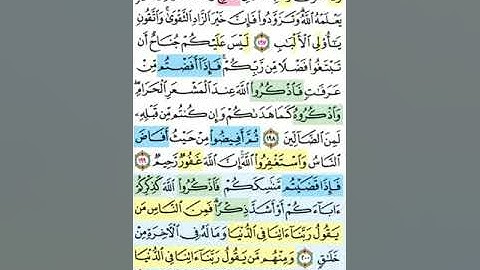 يَعْلَمْهُ ٱللَّهُ وَتَزَوَّدُوا۟ فَإِنَّ خَيْرَ ٱلزَّادِ ٱلتَّقْوَىٰ وَٱتَّقُونِ
يَٰٓأُو۟لِى ٱلْأَلْبَٰبِ ١٩٧ لَيْسَ عَلَيْكُمْ جُنَاحٌ أَن
تَبْتَغُوا۟ فَضْلًا مِّن رَّبِّكُمْ فَإِذَآ أَفَضْتُم مِّنْ
عَرَفَٰتٍ فَٱذْكُرُوا۟ ٱللَّهَ عِندَ ٱلْمَشْعَرِ ٱلْحَرَامِ
وَٱذْكُرُوهُ كَمَا هَدَىٰكُمْ وَإِن كُنتُم مِّن قَبْلِهِۦ
لَمِنَ ٱلضَّآلِّينَ ١٩٨ ثُمَّ أَفِيضُوا۟ مِنْ حَيْثُ أَفَاضَ
ٱلنَّاسُ وَٱسْتَغْفِرُوا۟ ٱللَّهَ إِنَّ ٱللَّهَ غَفُورٌ رَّحِيمٌ ١٩٩
فَإِذَا قَضَيْتُم مَّنَٰسِكَكُمْ فَٱذْكُرُوا۟ ٱللَّهَ كَذِكْرِكُمْ
ءَابَآءَكُمْ أَوْ أَشَدَّ ذِكْرًا فَمِنَ ٱلنَّاسِ مَن
يَقُولُ رَبَّنَآ ءَاتِنَا فِى ٱلدُّنْيَا وَمَا لَهُۥ فِى ٱلْءَاخِرَةِ مِنْ
خَلَٰقٍ ٢٠٠ وَمِنْهُم مَّن يَقُولُ رَبَّنَآ ءَاتِنَا فِى ٱلدُّنْيَا